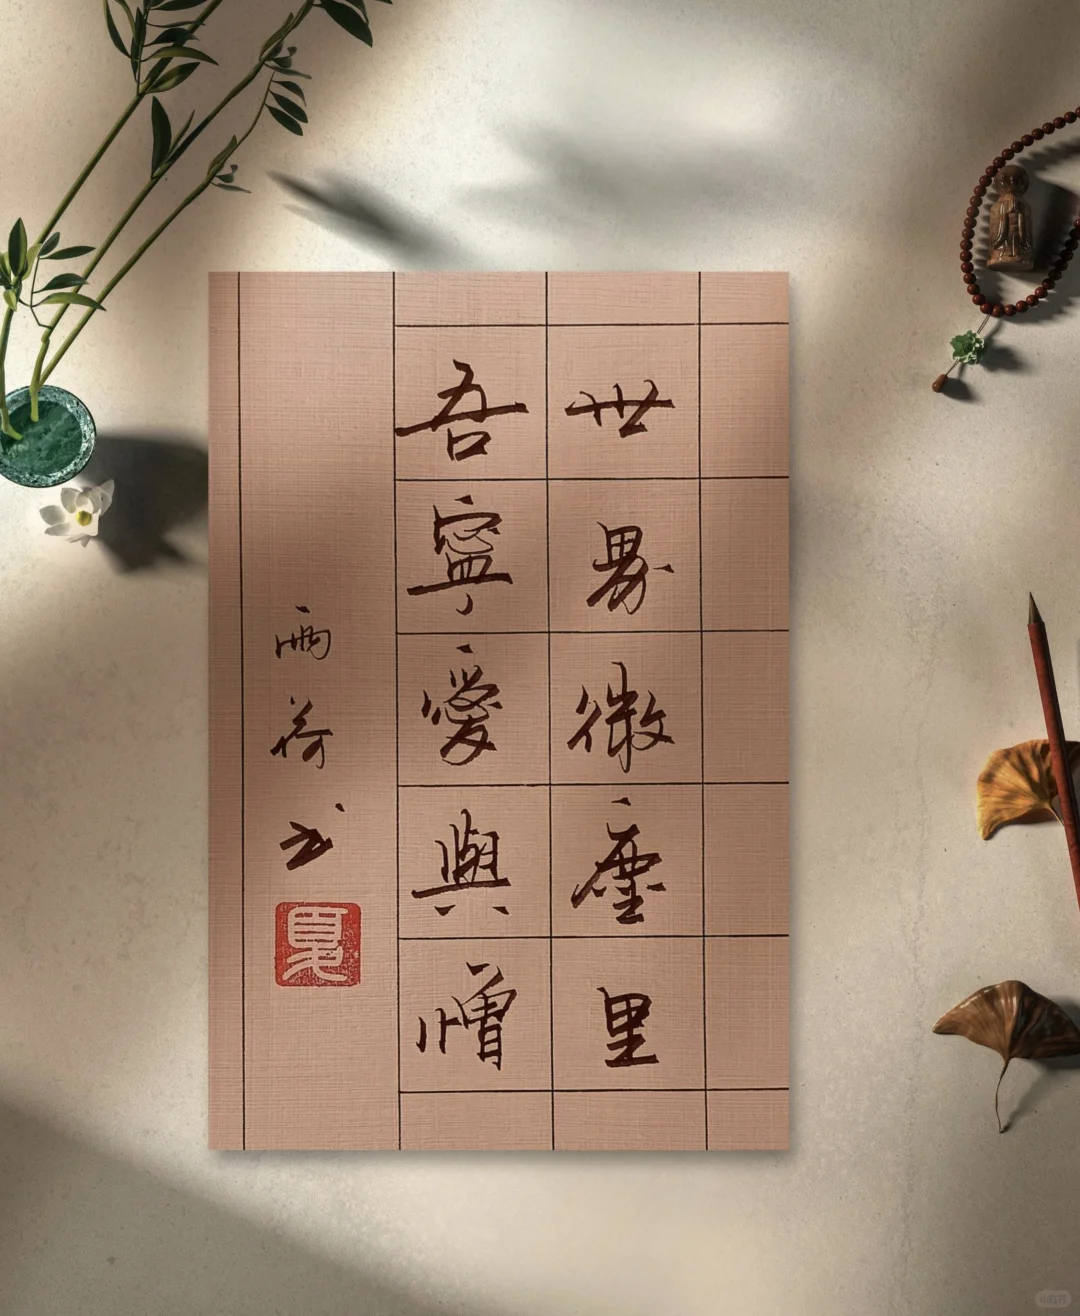 世界微塵里
吾寧愛與憎
雨荷书
夏